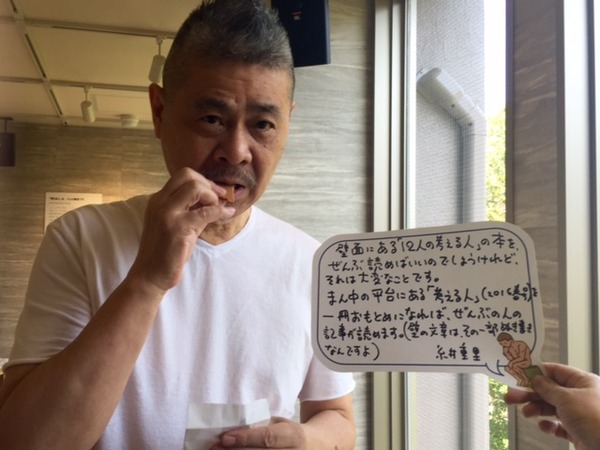 壁面にある「12人の考える人」の本を、
ぜんぶ読めばいいのでしょうけれど、
それは大変なことです。
まん中の平台にある「考える人」(2016春号)を
一冊おもとめになれば、ぜんぶの人の
記事が読めます。(壁の文章は、その一部ぬき書き
なんですよ) 糸井重里